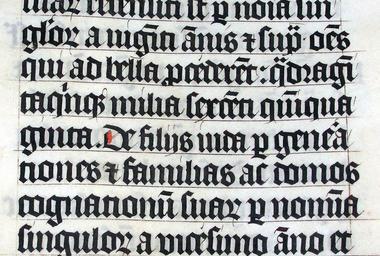 suaꝝ recensiti sūt ꝑ noīa sin
guloꝝ a uigīti ānis ⁊ supͣ · oēs
qui ad bella ꝓcederēt : q̄dragī
taqinqꝫ milia sexcēti quīqua
ginta. De filijs iuda ꝑ gen̄ea
tiones ⁊ familias ac domos
cognationū suaꝝ ꝑ nomīa
singuloꝝ a vicesimo āno et